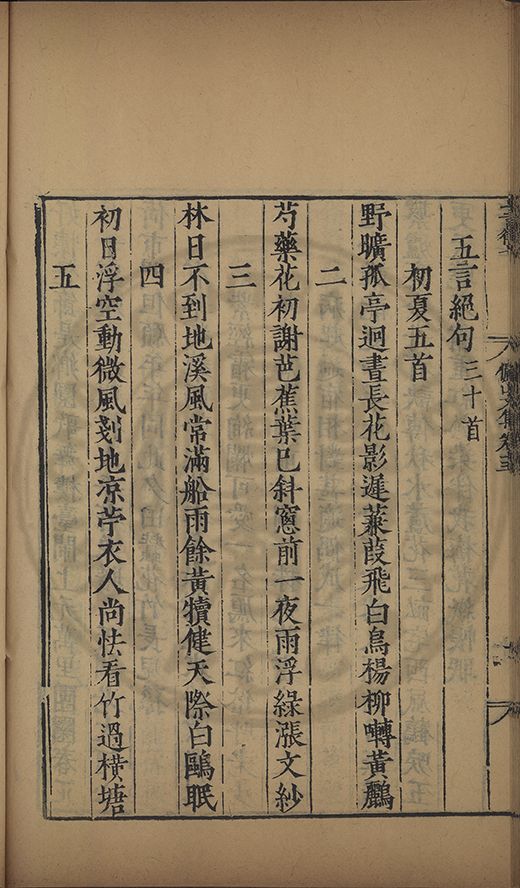 五言絕句三十首
初夏五首
野曠孤亭迥晝長花影遲蒹葭飛白鳥楊柳囀黃鸝
二
芍藥花初謝芭蕉葉已斜窻前一夜雨浮綠漲文紗
三
林日不到地溪風常滿船雨餘黃犢健天際白鷗眠
四
初日浮空動微風剗地凉苧衣人尚怯看竹過橫塘
五